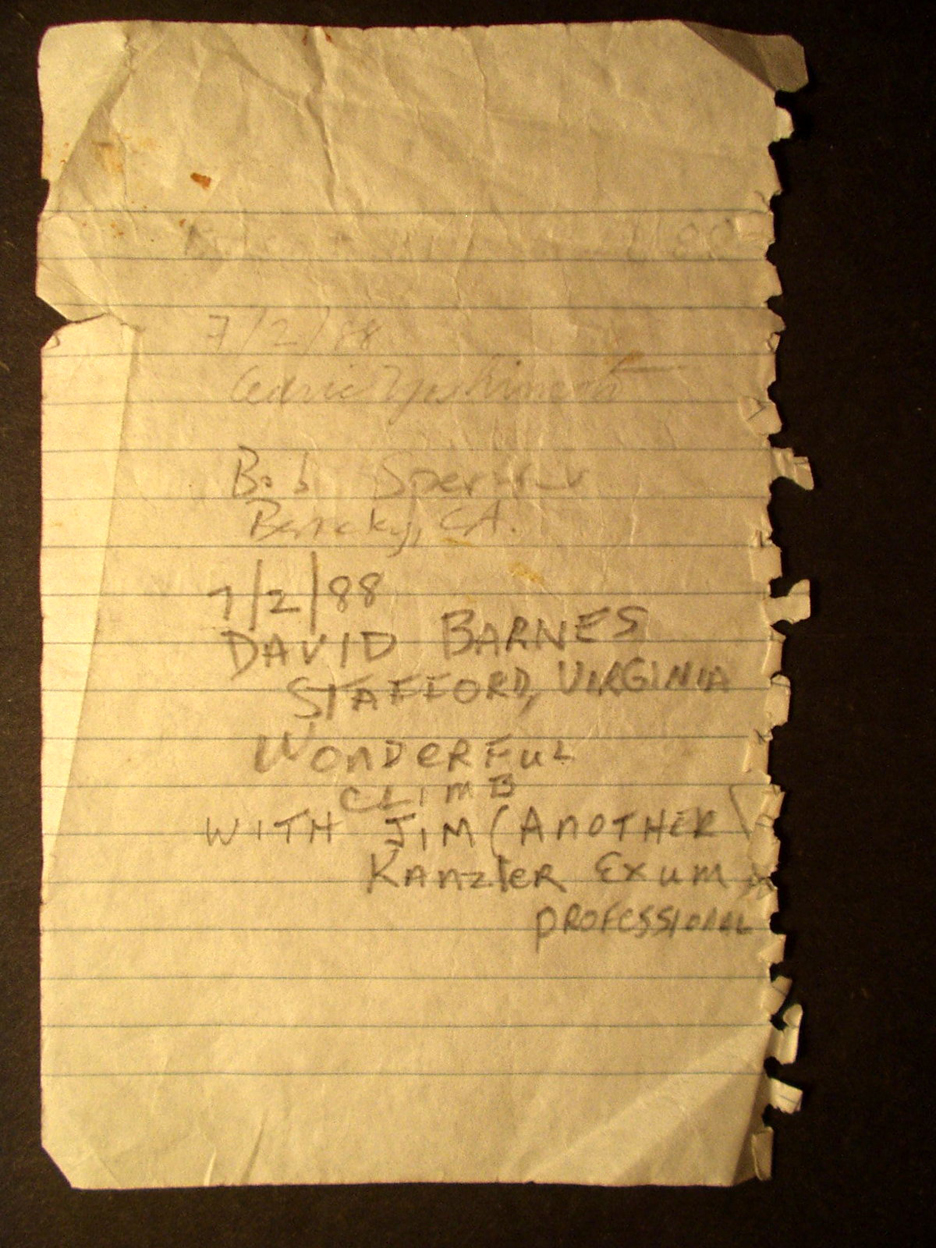 7/2/88
Bob
CA.
7/2/88
DAVID BARNES
STAFFORD, VIRGINIA
WONDERFUL
CLIMB
WITH JIM (ANOTHER
KANZLER EXUM
PROFESSIONAL